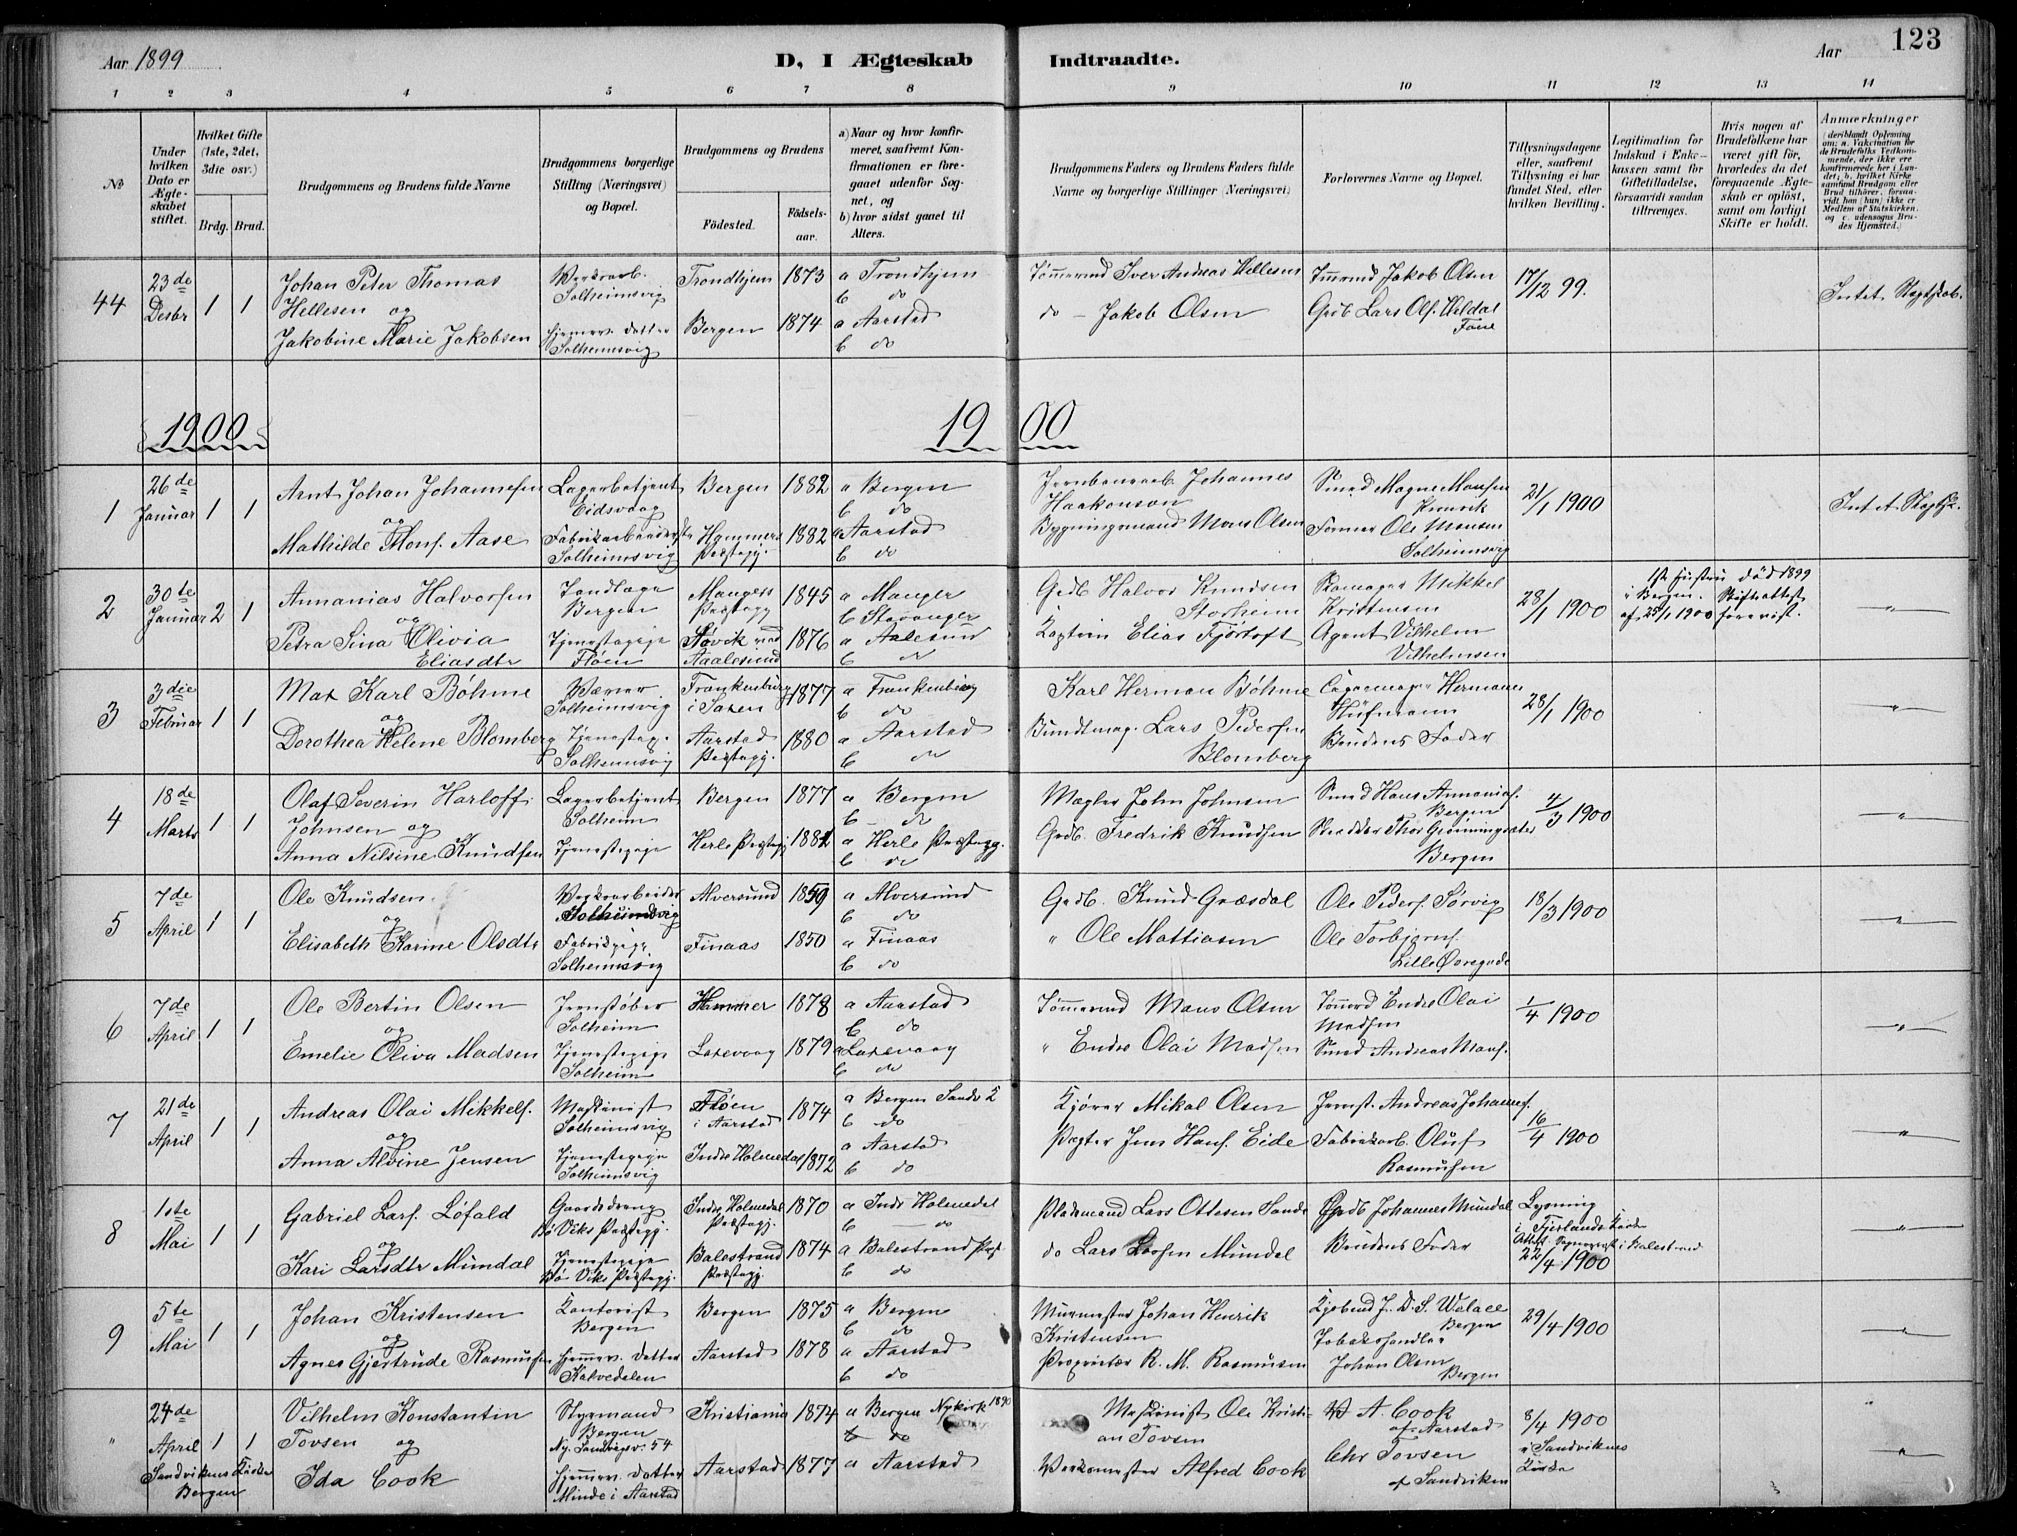 Aar 1899
D, I Ægteskab Indtraadte.
Aar
123
1 2 3 4 5 6 7 8 9 10 11 12 13 14
No
Under hvilken Dato er Ægteskabet stiftet.
Hvilket Gifte (1ste, 2det, 3die osv.)
Brdg. Brud.
Brudgommens og Brudens fulde Navne
Brudgommens borgerlige Stilling (Næringsvei) og Bopæl.
Brudgommens og Brudens
Fødested.
Fødselsaar.
a) Naar og hvor konfirmeret, saafremt Konfirmationen er foregaaet udenfor Sognet, og
b) hvor sidst gaaet til Alters.
Brudgommens Faders og Brudens Faders fulde Navne og borgerlige Stillinger (Næringsvei)
Forlovernes Navne og Bopæl.
Tillysningsdagene eller, saafremt Tillysning ei har fundet Sted, efter hvilken Bevilling.
Legitimation for Indskud i Enkekassen samt for Giftetilladelse, forsaavidt saadan tiltrænges.
Hvis nogen af Brudefolkene har været gift før, hvorledes da det foregaaende Ægteskab er opløst, samt om lovligt Skifte er holdt.
Anmærkninger
44 23de Desbr 1 1
Johan Peter Thomas Hellesen og
Verksarb. Solheimsvig Trondhjem 1873 a Trondhjem b do
Jakobine Marie Jakobsen
Hjemmev. Datter Solheimsvig Bergen 1874 a Aarstad b do
Tømmermd Iver Andreas Hellesen
do - Jakob Olsen
Tmrmd Jakob Olsen
Grdb Lars Ols. Heldal Fane
17/12 99.
Intet Slegtskab.
1900 1900
1 26de Januar 1 1
Arnt Johan Johannesen og
Lagerbetjent Eidsvaag Bergen 1882 a Bergen b do
Mathilde Mons. Aase
Fabrikarbeiderske Solheimsvig Hammers Præstegj. 1882 a Aarstad b do
Jernbanearb. Johannes Haakonson
Bygningsmand Mons Olsen
Smed Magne Monsen
Former Ole Monsen Solheimsvig
21/1 1900
Intet Slegtsk.
2 30te Januar 2 1
Annanias Halvorsen og
Bergen Mangers Præstegj 1845 a Manger b Stavanger
Petra Sina Olivia Eliasdtr
Tjenestepige Fløen Støvik ved Aalesund 1876 a Aalesund b do
Grdb Halvor Knudsen Storheim
Kaptein Elias Fjørtoft
Mikkel Kristensen
Agent Vilhelm Vilhelmsen
28/1 1900
1ste Hustru død 1899 i Bergen. Skifteattest af 25/1 1900 forevist.
"
3 3die Februar 1 1
Max Karl Böhme og
Væver Solheimsvig Frankenburg i Saxen 1877 a Frankenburg b do
Dorothea Helene Blomberg
Tjenestep. Solheimsvig Aarstad Præstegj. 1880 a Aarstad b do
Karl Herman Böhme
Bundtmag. Lars Pedersen Blomberg
Herman Hüfmann
Brudens Fader
28/1 1900
"
4 18de Marts 1 1
Olaf Severin Harloff Johnsen og
Lagerbetjent Solheim Bergen 1877 a Bergen b do
Anna Nilsine Knudsen
Tjenestepige Herlø Præstegj 1882 a Herlø Præstegj. b do
Mægler John Johnsen
Grdb. Fredrik Knudsen
Smed Hans Annanias. Bergen
Skrædder Thor Grønningsæter Bergen
4/3 1900
"
5 7de April 1 1
Ole Knudsen og
Verksarbeider Solheimsvig Alversund 1859 a Alversund b do
Elisabeth Karine Olsdtr
Fabrikpige Solheimsvig Finaas 1850 a Finaas b do
Grdb. Knud Græsdal
" Ole Mattiasen
Ole Peders. Sørvig
Ole Torbjørns. Lille Øvregade
18/3 1900
"
6 7de April 1 1
Ole Bertin Olsen og
Jernstøber Solheim Hammer 1878 a Aarstad b do
Emelie Oliva Madsen
Tjenestepige Solheim Laxevaag 1879 a Laxevaag b do
Tømmermd Mons Olsen
" Endre Olai Madsen
Tømmrd Endre Olai Madsen
Smed Andreas Mons.
1/4 1900
"
7 21de April 1 1
Andreas Olai Mikkels. og
Maskinist Solheimsvig Fløen i Aarstad 1874 a Bergen Sandv. K b do
Anna Alvine Jensen
Tjenestepige Solheimsvig Indre Holmedal 1872 a Aarstad b do
Kjører Mikal Olsen
Pagter Jens Hans. Eide
Jernst. Andreas Johannes.
Fabrikarb. Oluf Rasmussen
16/4 1900
"
8 1ste Mai 1 1
Gabriel Lars. Løfald og
Gaardsdreng Bø Viks Præstegj. Indre Holmedal Præstegj. 1870 a Indr Holmedal b do
Kari Larsdtr Mundal
Tjenestepige Bø Viks Præstegj. Balestrand Præstegj. 1874 a Balestrand Præst b do
Pladsmand Lars Ottesen Sande
do Lars Larsen Mundal
Grdb Johannes Mundal
Brudens Fader
Lysning i Fjerlands Kirke Attest Sognepræst i Balestrand 22/4 1900
"
9 5te Mai 1 1
Johan Kristensen og
Kontorist Bergen Bergen 1875 a Bergen b do
Agnes Gjertrude Rasmussen
Hjemmev. Datter Kalvedalen Aarstad 1878 a Aarstad b do
Murmester Johan Henrik Kristensen
Proprietær R. M. Rasmussen
Kjøbmd J. D. S. Walace Bergen
Tobakshandler Johan Olsen Bergen
29/4 1900
"
" 24de April 1 1
Sandvikens Kirke Bergen
Vilhelm Konstantin Tovsen og
Styrmand Bergen Ny. Sandvigsv. 54 Kristiania 1874 a Bergen Nykirk 1890 b do
Ida Cook
Hjemmev. Datter Minde i Aarstad Aarstad 1877 a Aarstad
Maskinist Ole Kristian Tovsen
Verksmester Alfred Cook
W A. Cook af Aarstad
Chr Tovsen af Sandviken
8/4 1900 i Sandvikens Kirke
"